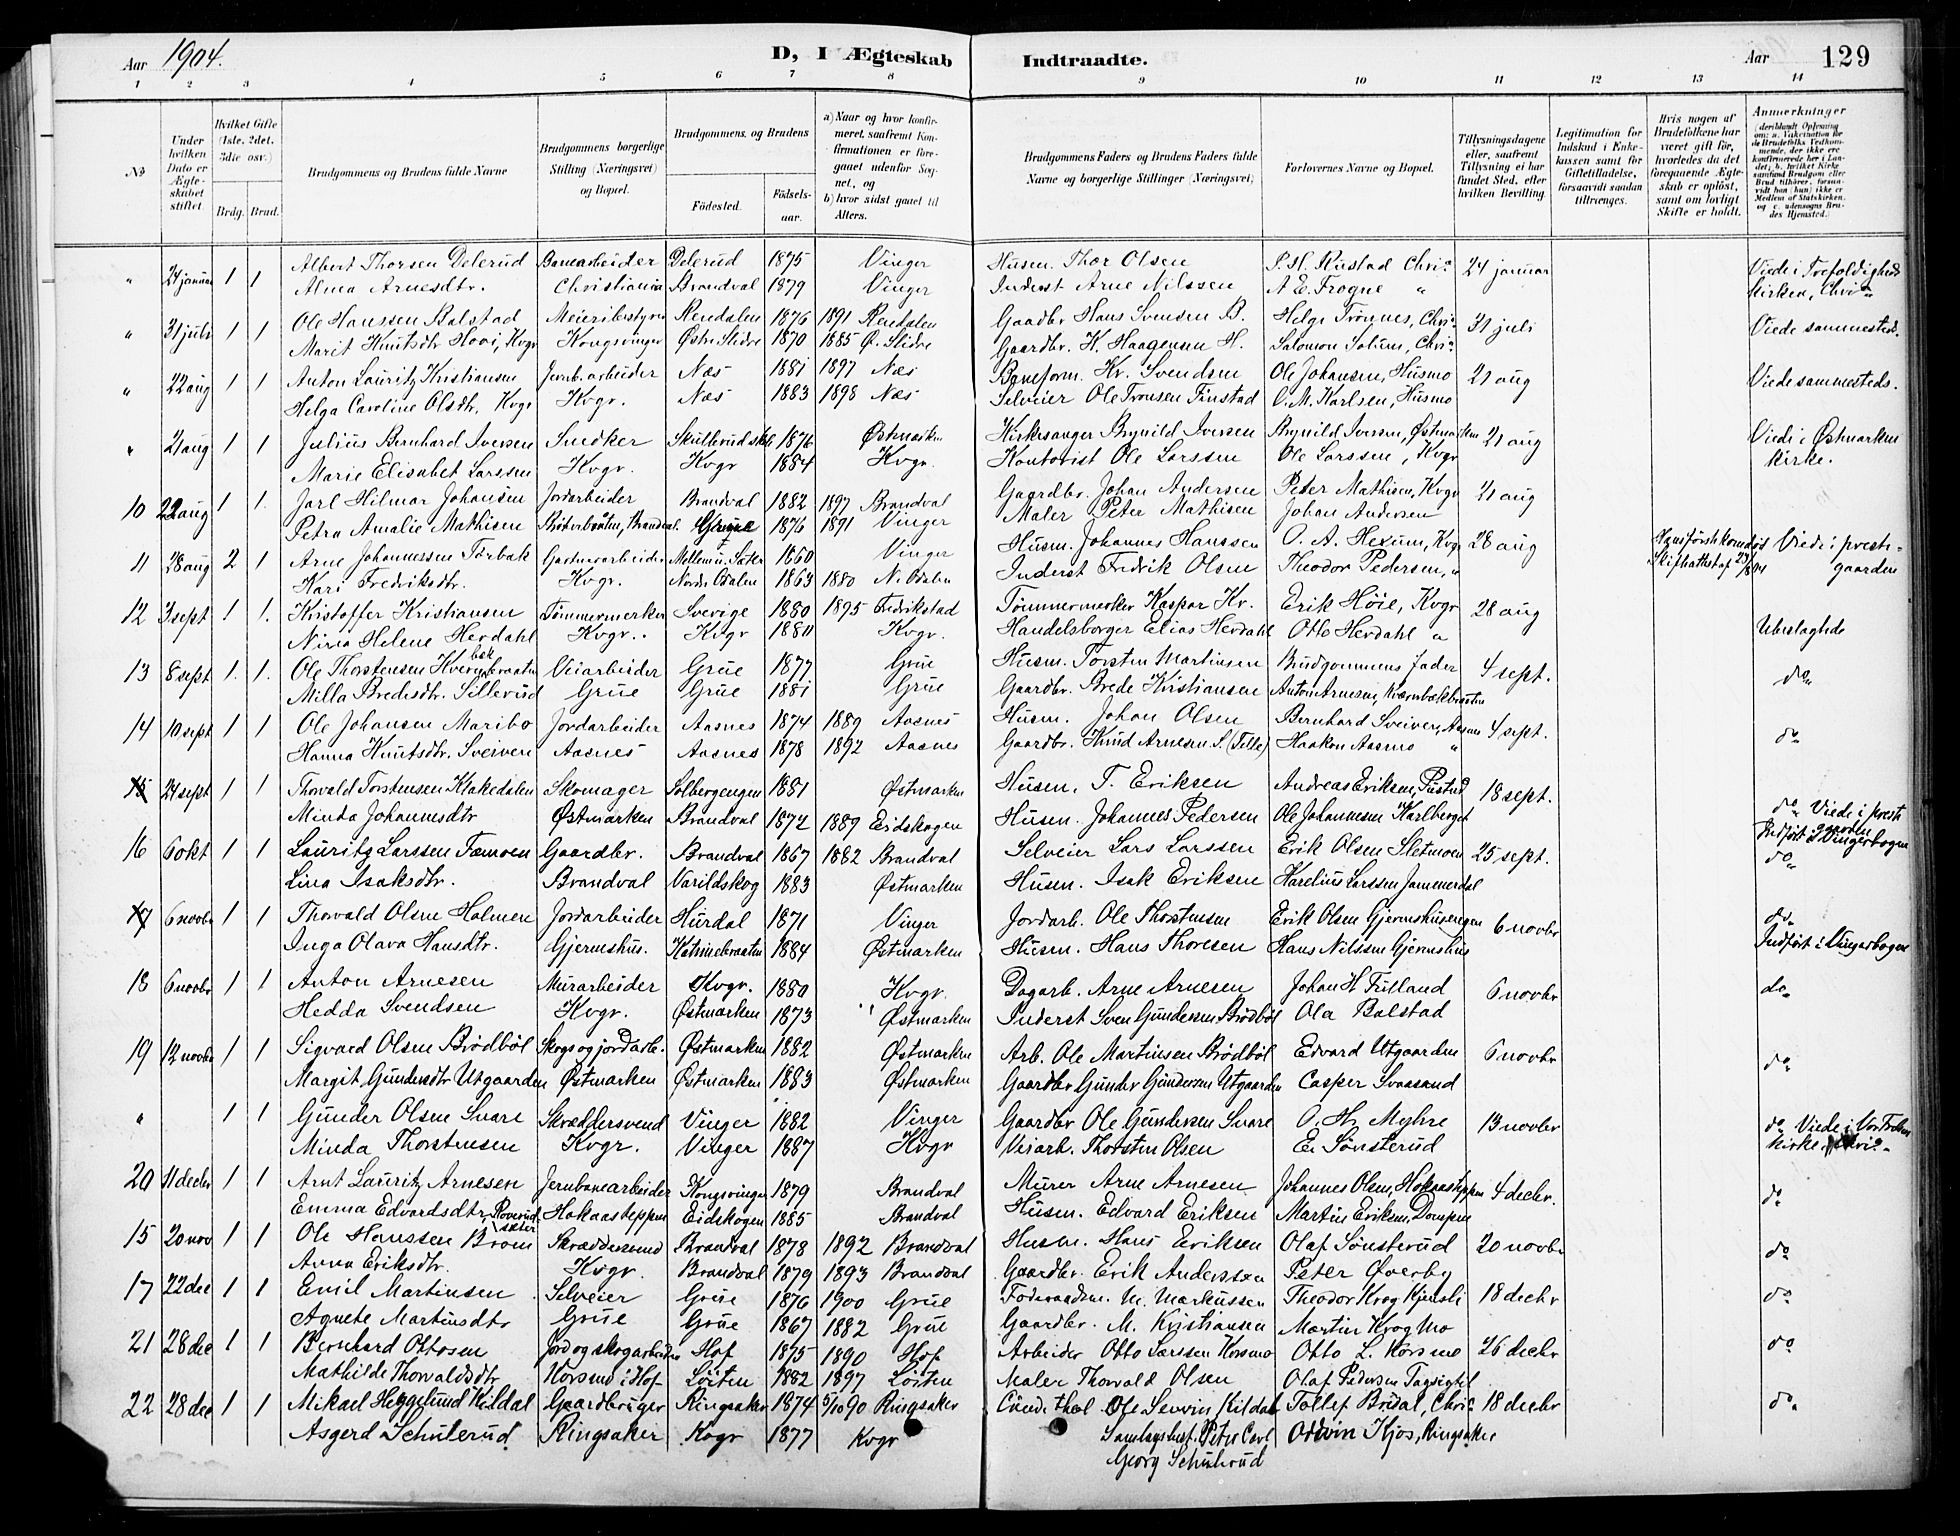 Aar 1904.
D, I Ægteskab Indtraadte.
Aar 129
1 2 3 4 5 6 7 8 9 10 11 12 13 14
No
Under hvilken Dato er Ægteskabet stiftet.
Hvilket Gifte (1ste, 2det, 3die osv.)
Brdg. Brud.
Brudgommens og Brudens fulde Navne
Brudgommens borgerlige Stilling (Næringsvei) og Bopæl.
Brudgommens, og Brudens
Fødested.
Fødselsaar.
a) Naar og hvor konfirmeret, saafremt Konfirmationen er foregaaet udenfor Sognet, og
b) hvor sidst gaaet til Alters.
Brudgommens Faders og Brudens Faders fulde Navne og borgerlige Stillinger (Næringsvei)
Forlovernes Navne og Bopæl.
Tillysningsdagene eller, saafremt Tillysning ei har fundet Sted, efter hvilken Bevilling.
Legitimation for Indskud i Enkekassen samt for Giftetilladelse, forsaavidt saadan tiltrænges.
Hvis nogen af Brudefolkene har været gift før, hvorledes da det foregaaende Ægteskab er opløst, samt om lovligt Skifte er holdt.
Anmerkninger
" 24 januar 1 1 Albert Thorsen Delerud Banearbeider Delerud 1875 Vinger Husm. Thor Olsen P. H. Rustad Chria 24 januar Viede i Trefoldigheds
Alma Arnesdtr. Christiania Brandval 1879 Vinger Inderst Arne Nilssen A. E. Frogne " kirken, Chria
" 31 juli 1 1 Ole Hanssen Balstad Meieribestyrer Rendalen 1876 1891 Rendalen Gaardbr Hans Svensen B. Helge Trønnes, Chria 31 juli Viede sammesteds.
Marit Knutsdtr Hovi, Kvgr Kongsvinger Østre Slidre 1870 1885 Ø. Slidre Gaardbr. K. Haagensen H. Salomon Solum, Chria
" 22 aug 1 1 Anton Lauritz Kristiansen Jernb. arbeider Næs 1881 1897 Næs Baneform. Kr. Svendsen Ole Johansen, Husmo 21 aug Viede sammesteds.
Helga Caroline Olsdtr, Kvgr Kvgr. Næs 1883 1898 Næs Selveier Ole Tronsen Finstad O. M. Karlsen, Husmo
" 21 aug 1 1 Julius Bernhard Iversen Snedker 1876 Østmarken Kirkesanger Brynild Iversen Brynild Iversen, Østmarken 21 aug Viede i Østmarken
Marie Elisabet Larssen Kvgr. Kvgr 1884 Kvgr. Kontorist Ole Larssen Ole Larssen, Kvgr Kirke.
10 22 aug 1 1 Jarl Hilmar Johansen Jordarbeider Brandval 1882 1897 Brandval Gaardbr. Johan Andersen Peter Mathisen, Kvgr 21 aug
Petra Amalie Mathisen Grue 1876 1891 Vinger Maler Peter Mathisen Johan Andersen
11 28 aug 2 1 Arne Johannessen Torbak Gartnerarbeider 1860 Vinger Husm. Johannes Hanssen O. A. Hexum, Kvgr 28 aug Viede i prest-
Kari Fredriksdtr. Kvgr. Nordre Odalen 1863 1880 N. Odalen Inderst Fredrik Olsen Theodor Pedersen, " gaarden
12 3 sept 1 1 Kristoffer Kristiansen Tømmermerker Sverige 1880 1895 Fredrikstad Tømmermerker Kaspar Kr. Erik Høie, Kvgr 28 aug
Helene Herdahl Kvgr. Kvgr 1880 Kvgr. Handelsborger Elias Herdahl Otto Herdahl " Ubeslagtede
13 8 sept 1 1 Ole Thorstensen Kvernbekbraaten Veiarbeider Grue 1877 Grue Husm. Torsten Martinsen Brudgommens fader 4 sept. do
Milla Bredesdtr. Sillerud Grue Grue 1881 Grue Gaardbr. Brede Kristiansen Anton Arnesen, Kvernbekbraaten
14 10 sept 1 1 Ole Johansen Maribo Jordarbeider Aasnes 1874 1889 Aasnes Husm. Johan Olsen Bernhard Sveiven, Aasnes 4 sept. do
Hanna Knutsdtr. Sveiven Aasnes Aasnes 1878 1892 Aasnes Gaardbr. Knud Arnesen S. Haakon Aasmo "
15 24 sept 1 1 Thorvald Torstensen Klakedalen Skomager Solbergengen 1881 Østmarken Husm. T. Eriksen Andreas Eriksen, 18 sept. do Viede i prestegaarden
Minda Johannesdtr Østmarken Brandval 1872 1889 Eidskogen Husm. Johannes Pedersen Ole Johannesen Karlberget Indført i Vingerbogen
16 6 okt 1 1 Lauritz Larssen Tæmoen Gaardbr. Brandval 1867 1882 Brandval Selveier Lars Larssen Erik Olsen Sletmoen 25 sept. do
Lina Isaksdtr. Brandval Varildskog 1883 Østmarken Husm. Isak Eriksen Karelius Larssen Jammerdal
17 6 novbr 1 1 Thorvald Olsen Holmen Jordarbeider Hurdal 1871 Vinger Jordarb. Ole Thorstensen Erik Olsen Gjermshusengen 6 novbr do
Inga Olava Hansdtr. Gjermshus. 1884 Østmarken Husm. Hans Thoresen Hans Nilssen Gjermshus Indført i Vingerbogen
18 6 novbr 1 1 Anton Arnesen Murarbeider Kvgr. 1880 Kvgr. Dagarb. Arne Arnesen Johan H. 6 novbr do
Hedda Svendsen Kvgr. Østmarken 1873 Østmarken Inderst Sven Gundersen Brødbøl Ola Balstad
19 12 novbr 1 1 Sigvard Olsen Brødbøl Skogs og jordarb. Østmarken 1882 Østmarken Arb. Ole Martinsen Brødbøl Edvard Utgaarden 6 novbr do
Margit Gundersdtr Utgaarden Østmarken Østmarken 1883 Østmarken Gaardbr Gunder Gundersen Utgaarden Casper Svaasand
" 1 1 Gunder Olsen Svare Skræddersvend Vinger 1882 Vinger Gaardbr Ole Gundersen Svare O. Hr. Myhre 13 novbr do Viede i Vor Frelsers
Minda Thorstensen Kvgr. Vinger 1887 Kvgr Veiarb. Thorsten Olsen E. Sønsterud Kirke, Chria
20 11 decbr 1 1 Arnt Lauritz Arnesen Jernbanearbeider Kongsvinger 1879 Brandval Murer Arne Arnesen Johannes Olsen, Hokaasteppen 4 decbr. do
Emma Edvardsdtr, Roverudsæter Hokaasteppen Eidskogen 1885 Brandval Husm. Edvard Eriksen Martin Eriksen,
15 20 nov 1 1 Ole Hanssen Brom Skræddersvend Brandval 1878 1892 Brandval Husm. Hans Eriksen Olaf Sønsterud 20 novbr do
Anna Eriksdtr. Kvgr. Brandval 1879 1893 Brandval Gaardbr. Erik Anderssen Peter Øverby
17 22 dec 1 1 Emil Martinsen Selveier Grue 1876 1900 Grue Føderaadsm. M. Markussen Theodor Krog 18 decbr do
Agnete Martinsdtr Grue Grue 1867 1882 Grue Gaardbr. M. Kristiansen Martin Krog Mo
21 28 dec 1 1 Bernhard Ottosen Jord og skogarbeider Hof 1875 1890 Hof Arbeider Otto Larssen Korsmo Otto L. Korsmo 26 decbr do
Mathilde Thorvaldsdtr Korsmo i Hof Løiten 1882 1897 Løiten Maler Thorvald Olsen Olaf Pedersen
22 28 dec 1 1 Mikael Heggelund Kildal Gaardbruger Ringsaker 1874 5/10 90 Ringsaker Cand. theol Ole Severin Kildal Tollef Bredal, Chria 18 decbr do
Asgerd Schulerud Ringsaker Kvgr 1877 Kvgr Samlagsbest. Peter Carl Odvin Kjos, Ringsaker
Georg Schulerud